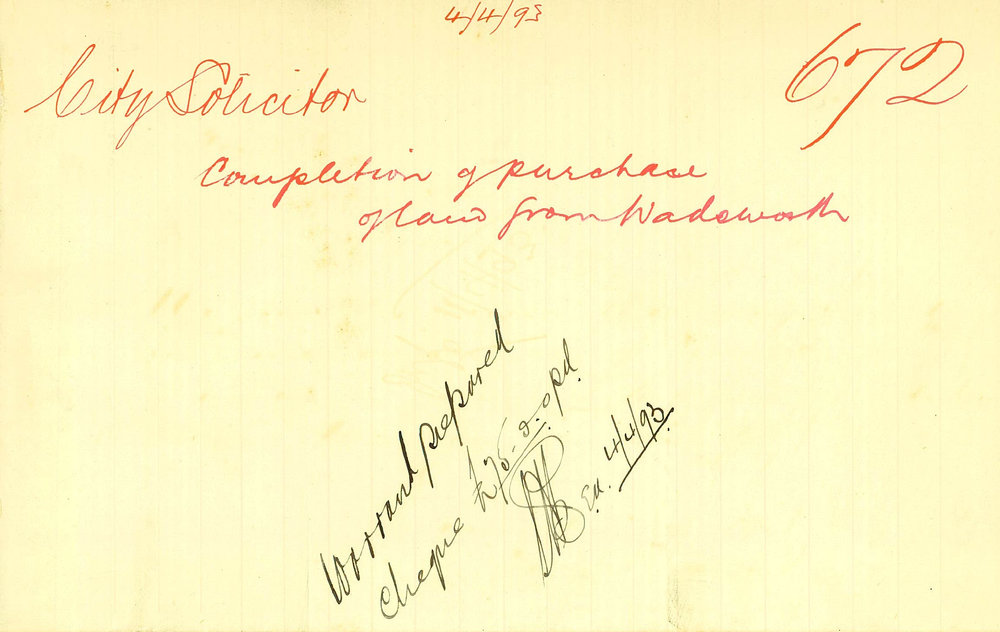 4/4/93
City Solicitor
672
Completion of purchase
of land from Wadsworth
Warrant prepared
Cheque pd.
Ed. 4/4/93